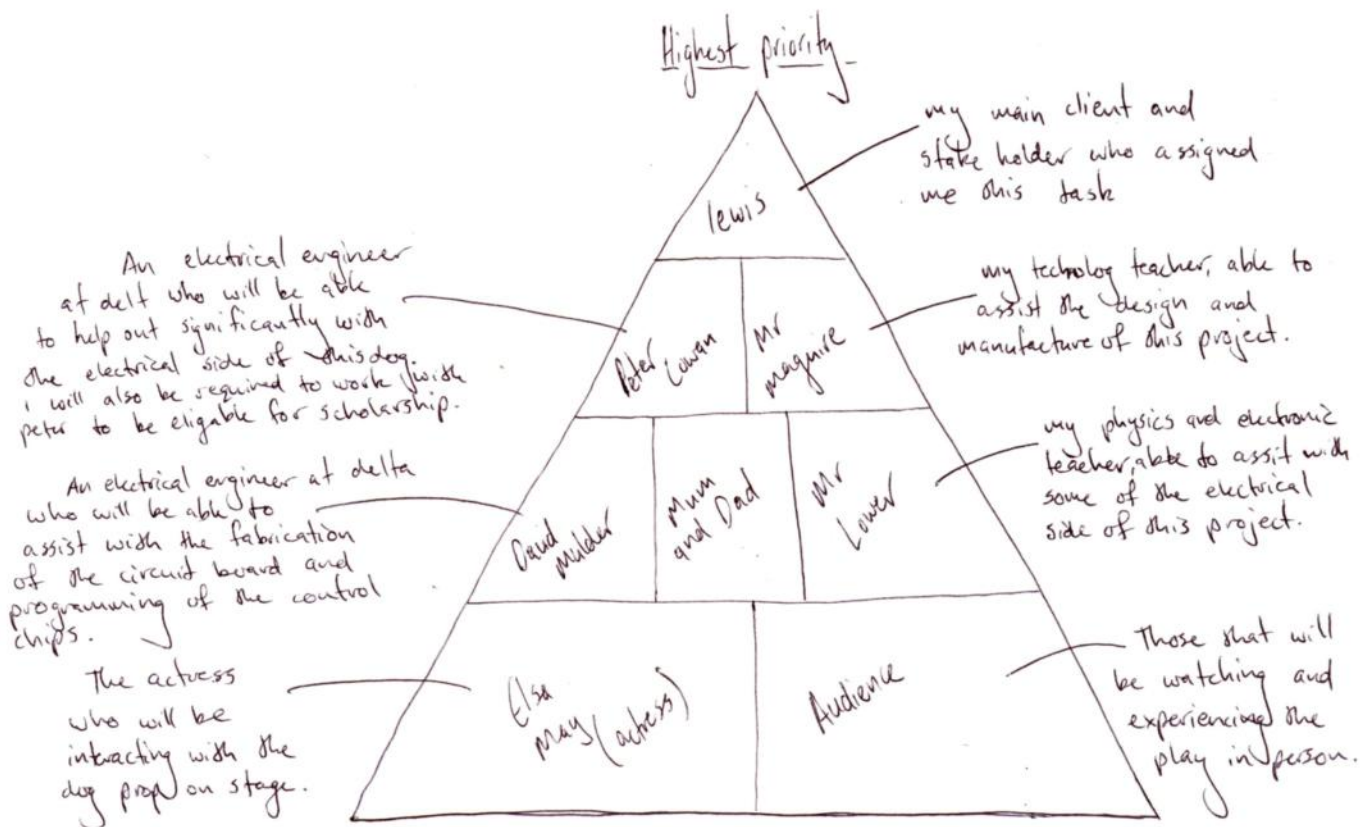 Highest priority
my main client and
stake holder who assigned
me this task
lewis
An electrical engineer
at delt who will be able
to help out significantly with
the electrical side of this dog.
i will also be required to work with
peter to be eligable for scholarship.
Peter
Cowan
Mr
maguire
my technolog teacher, able to
assist the design and
manufacture of this project.
An electrical engineer at delta
who will be able to
assist with the fabrication
of the circuit board and
programming of the control
chips.
David
Mulder
Mum
and Dad
Mr
Lower
my physics and electronic
teacher, able to assit with
some of the electrical
side of this project.
The actress
who will be
interacting with the
dog prop on stage.
Elsa
may (actress)
Audience
Those that will
be watching and
experiencing the
play in person.